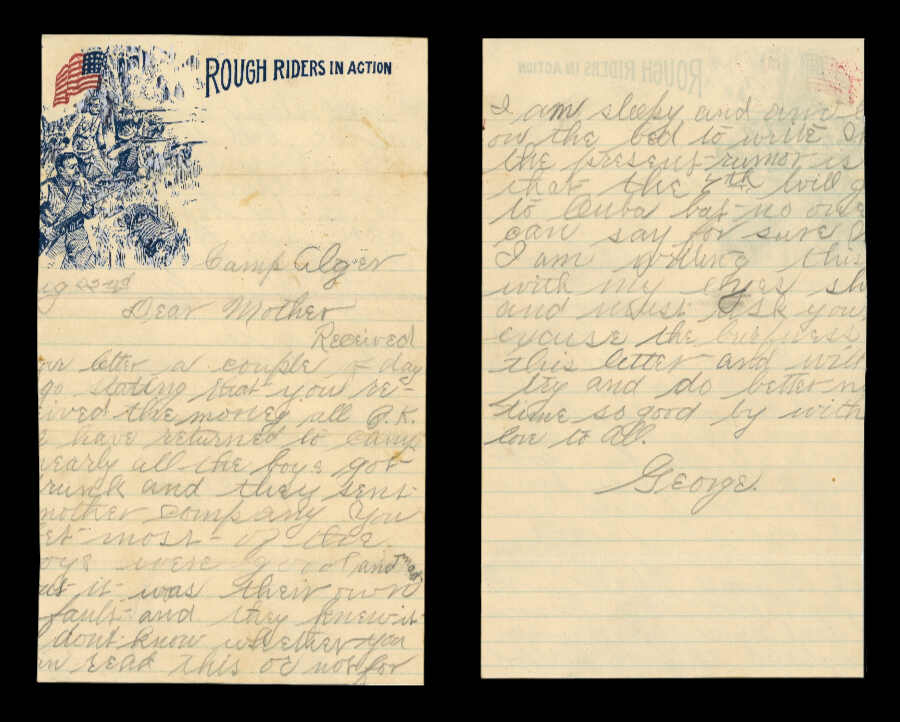 ROUGH RIDERS IN ACTION
Camp Alger
ug 23rd
Dear Mother
Received
ur letter a couple of day
go stating that you re-
eived the money all O.K.
e have returned to camp
nearly all the boys got
runk and they sent
nother company You
et most of the
oys were good and mad
ut it was their own
fault and they knew it
dont know whether you
n read this or not for
ROUGH RIDERS IN ACTION
I am sleepy and am
on the bed to write
the present rumor is
that the 7th will g
to Cuba but no one
can say for sure
I am writing this
with my eyes sh
and must ask you
excuse the briefness
this letter and will
try and do better n
time so good by with
love to all.
George.